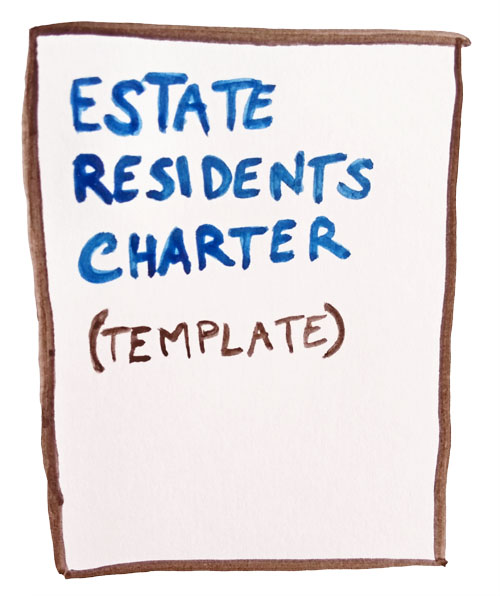 ESTATE
RESIDENTS
CHARTER
(TEMPLATE)